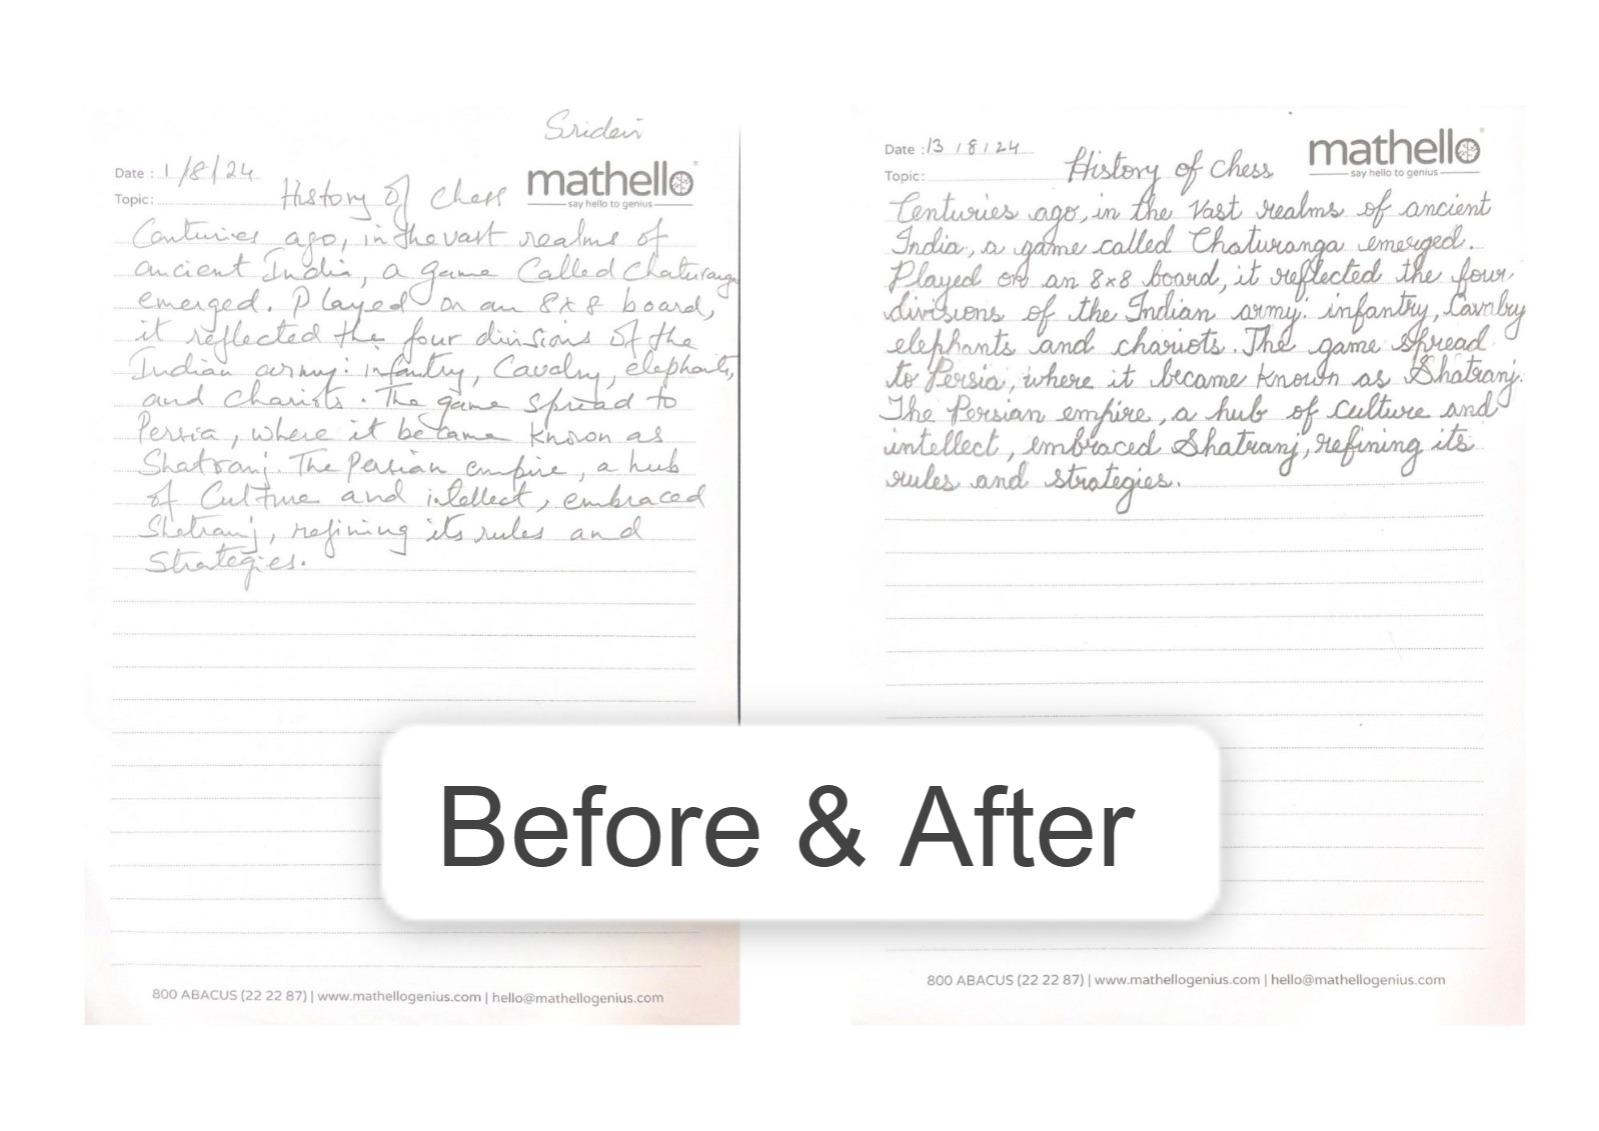 Sridevi
Date : 1/8/24
mathello
say hello to genius
Topic:
History of Chess
Centuries ago, in the vast realms of
ancient India, a game Called Chaturanga
emerged. Played on an 8x8 board,
it reflected the four divisions of the
Indian army: infantry, Cavalry, elephants,
and chariots. The game spread to
Persia, where it became known as
Shatranj. The Persian empire, a hub
of Culture and intellect, embraced
Shatranj, refining its rules and
Strategies.
800 ABACUS (22 22 87) | www.mathellogenius.com | hello@mathellogenius.com
Date : 13/8/24
mathello
say hello to genius
Topic:
History of Chess
Centuries ago, in the Vast realms of ancient
India, a game called Chaturanga emerged.
Played on an 8x8 board, it reflected the four
divisions of the Indian army: infantry, Cavalry
elephants and chariots. The game spread
to Persia, where it became known as Shatranj.
The Persian empire, a hub of culture and
intellect, embraced Shatranj, refining its
rules and strategies.
800 ABACUS (22 22 87) | www.mathellogenius.com | hello@mathellogenius.com
Before & After